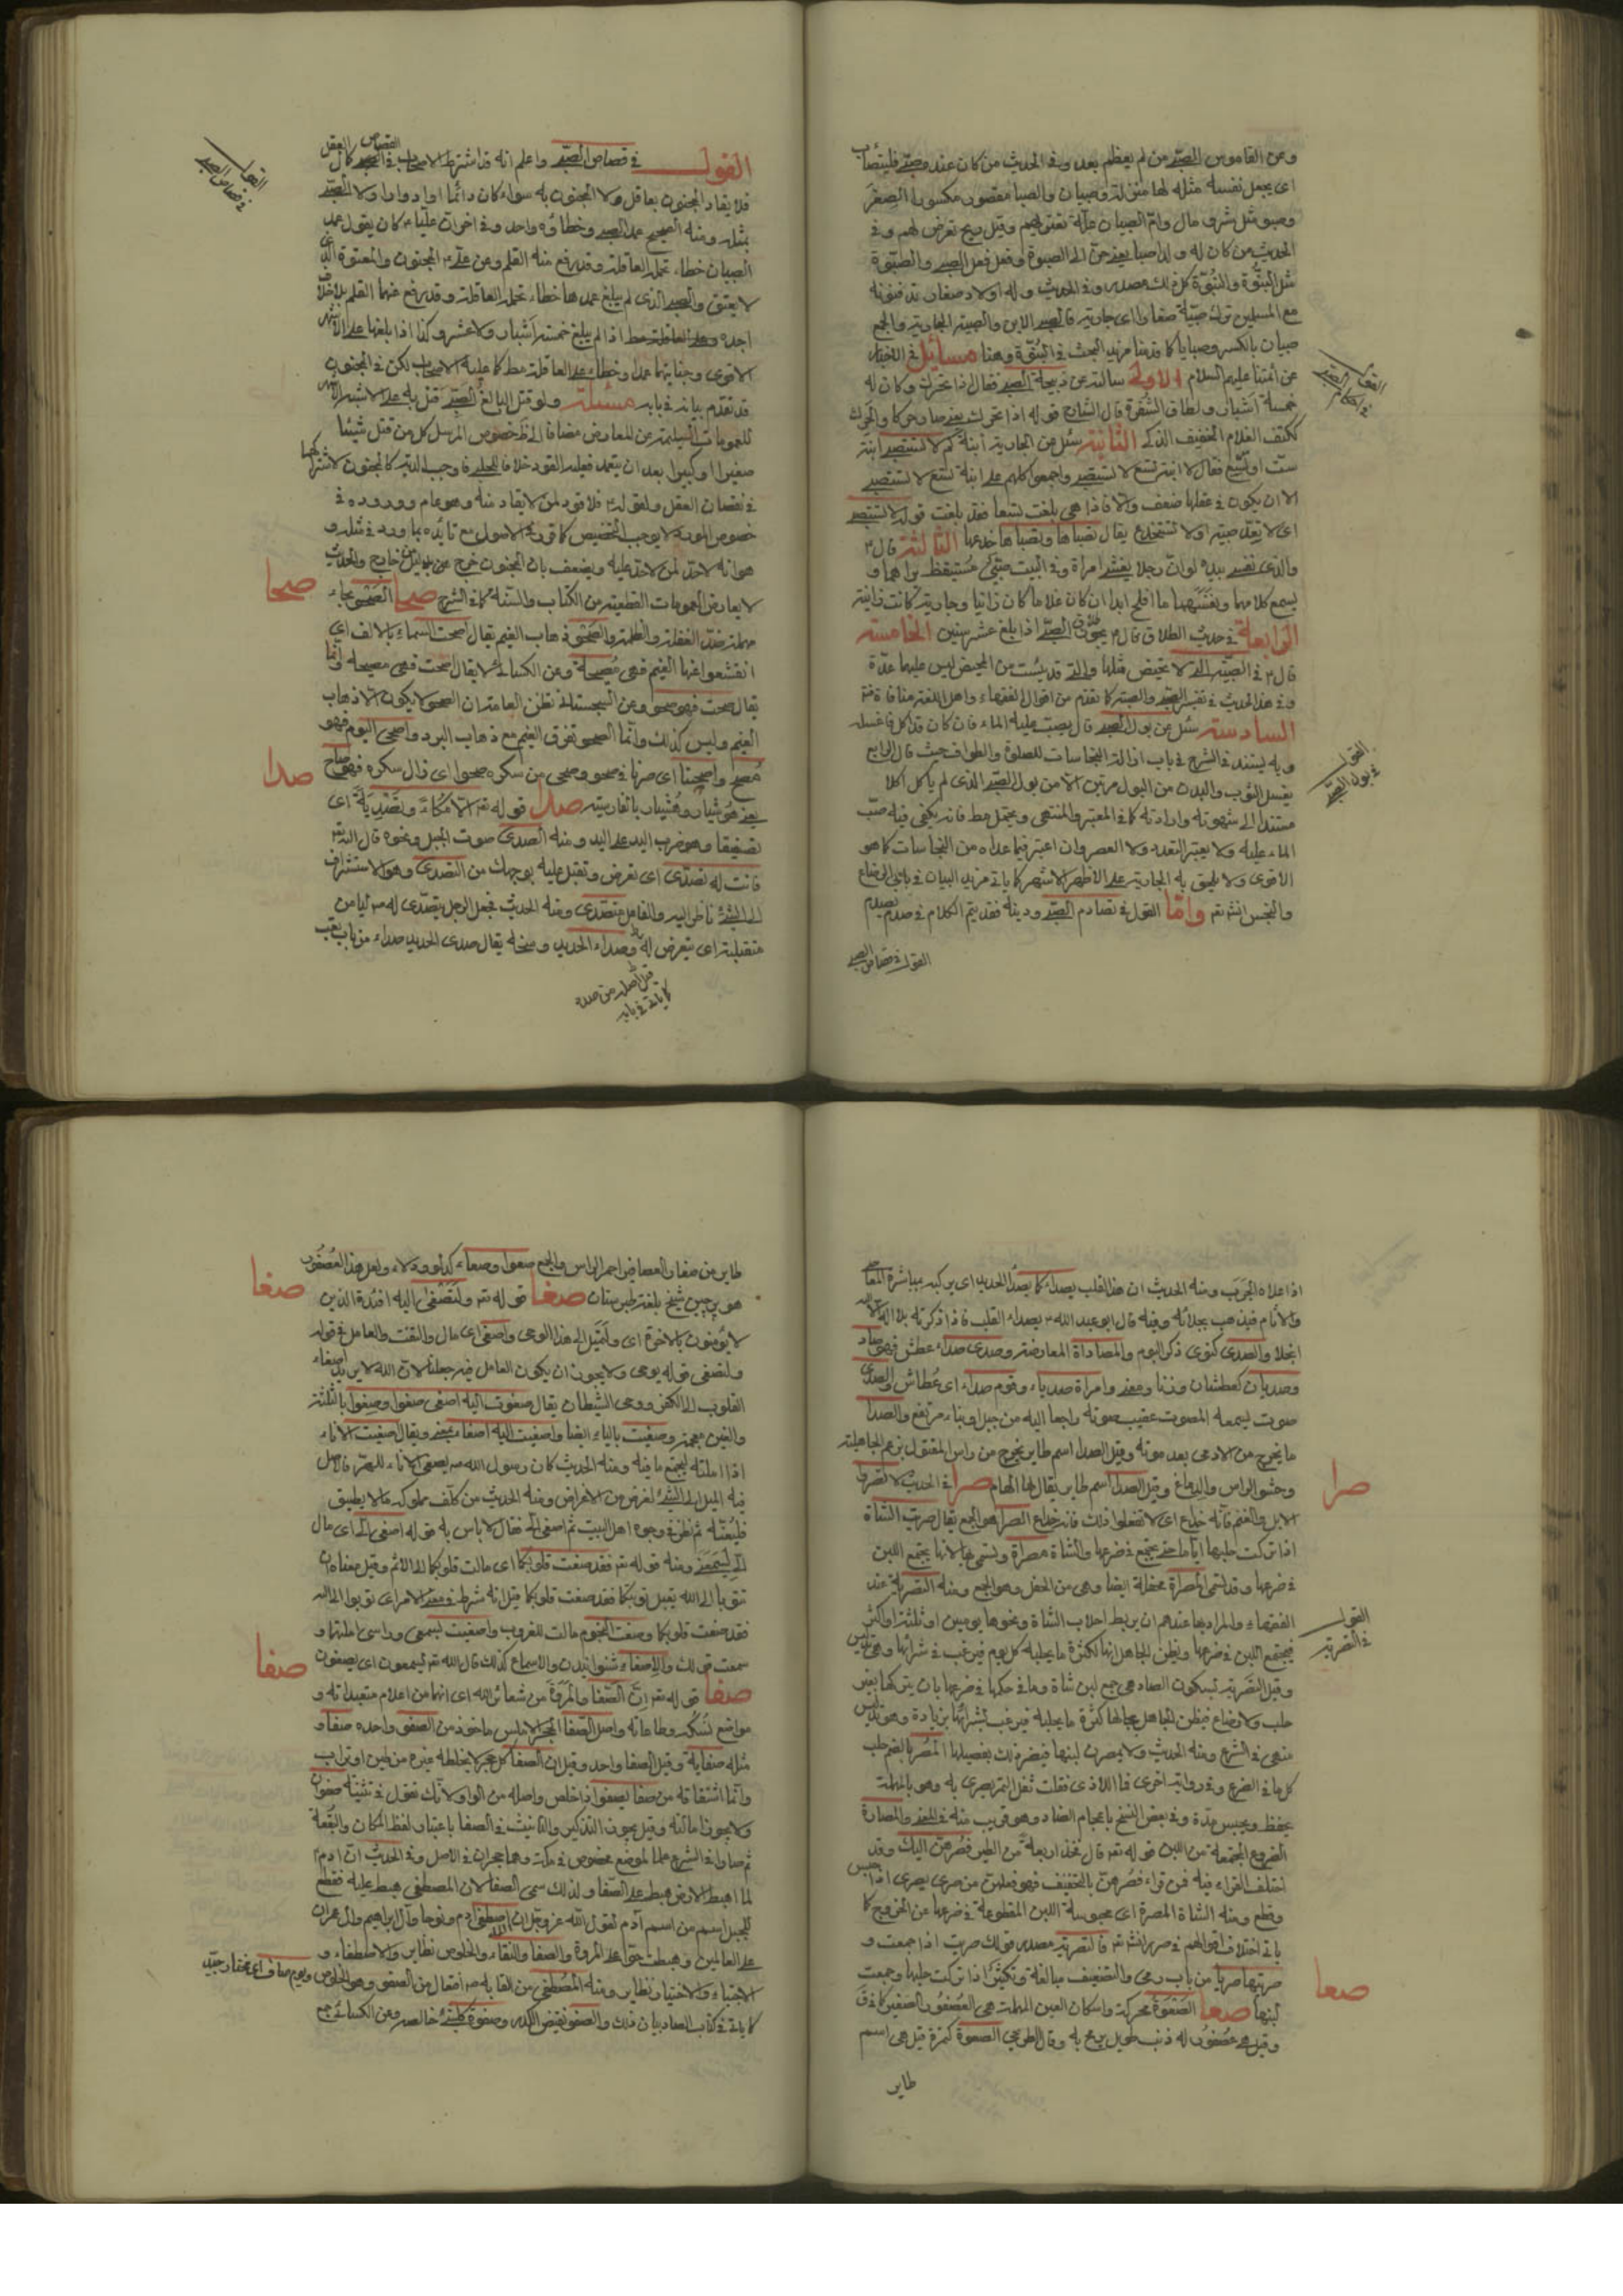 وعن القاموس الصبي من لم يعظم بعد وفي الحديث من كان عنده صبي فليتصاب
اي يجعل نفسه مثله لها منزلة وصبيان والصبا مقصور مكسور الصغر
الحديث من كان له ولد صبا يعني حن الى الصبوة وفعل فعل الصبي والصبوة
مثل البنوة والنبوة كل ذلك مصدر وفي الحديث وله اولاد صغار تدفنونه
مع المسلمين ترك صبية صغارا اي جارية فالصبي الابن والصبية الجارية والجمع
صبيان بالكسر وصبايا كما قدمنا مزيد البحث في البنوة وهنا مسائل في الاخبار
عن أئمتنا عليهم السلام الاولى سألته عن ذبيحة الصبي فقال اذا تحرك وكان له
خمسة اشبار ولطاق الشفرة قال الشارح قوله اذا تحرك يعني صار حركا والحرك
ككتف الغلام الخفيف الذكي الثانية سئل عن الجارية ابنة كم لا تستصبى ابنة
ست او سبع فقال لا ابنة تسع لا تستصبى واجمعوا كلهم على ابنة تسع لا تستصبى
الا ان يكون في عقلها ضعف والا فاذا هي بلغت تسعا فقد بلغت قوله لا تستصبى
اي لا يعد صبية او لا تستخدع يقال تصباها وتصباها خدعها الثالثة قال
والذي نفسي بيده لو ان رجلا يغشى امرأة وفي البيت صبي مستيقظ يراهما و
يسمع كلامهما ونفسهما ما افلح ابدا ان كان غلاما كان زانيا وجارية كانت زانية
الرابعة في حديث الطلاق قال يجوز طلاق الصبي اذا بلغ عشر سنين الخامسة
قال في الصبية التي لا تحيض مثلها والتي قد يئست من المحيض ليس عليها عدة
وفي هذا الحديث في تفسير الصبي والصبية كما تقدم من اقوال الفقهاء واهل اللغة منافاة
السادسة سئل عن بول الصبي قال يصب عليه الماء فان كان قد اكل فاغسله
وبه يستند في الشرح في باب ازالة النجاسات للصلوة والطواف حيث قال الرابع
يغسل الثوب والبدن من البول مرتين الا من بول الصبي الذي لم يأكل اكلا
مستندا الى شهوته وارادته كما في المعتبر والمنتهى ويحتمل مط فانه يكفي فيه صب
الماء عليه ولا يعتبر التعدد ولا العصر وان اعتبر فيما عداه من النجاسات كما هو
الاقوى ولا يلحق به الجارية على الاظهر الاشهر كما ياتي مزيد البيان في بابي الرضاع
والنجس انشـ تـ واما القول في تصادم الصبي ودينه فقد يتم الكلام في صدم
القول في قصاص الصبي
القول في بول الصبي
القول في قصاص الصبي واعلم انه قد اشترط الاصحاب في القصاص كمال العقل
فلا يقاد المجنون بعاقل ولا المجنون به سواء كان دائما او ادوارا ولا الصبي
بمثله ومنه الصحيح عمد الصبي وخطاؤه واحد وفي اخر ان عليا كان يقول عمد
الصبيان خطاء تحمله العاقلة وقد رفع عنه القلم وعن علي المجنون والمعتوه الذي
لا يعتق والصبي الذي لم يبلغ عمدهما خطاء تحمله العاقلة وقد رفع عنهما القلم بلا خلاف
اجده وعلى العاقلة مط اذا لم يبلغ خمسة اشبار ولا عشر وكذا اذا بلغها على الاشهر
الاقوى وجنايتهما عمدا وخطاء على العاقلة مط كما عليه الاصحاب لكن في المجنون
قد تقدم بيانه في بابه مسئلة ولو قتل البالغ الصبي قتل به على الاشبه الاشهر
للعمومات السليمة عن المعارض مضافا الى خصوص المرسل كل من قتل شيئا
صغيرا او كبيرا بعد ان يتعمد فعليه القود خلافا للحلبي فاوجب الدية كالمجنون لاشتراكهما
في نقصان العقل ولقوله فلا قود لمن لا يقاد منه وهو عام ووروده في
خصوص المورد لا يوجب التخصيص كما قرر في الاصول مع تأيده بما ورد في مثله و
هو انه لاحد لمن لاحد عليه ويضعف بان المجنون خرج عن بدليل خارج والحديث
لا يعارض العمومات القطعية من الكتاب والسنة كما في الشرح صحا الصحو بحاء
مهملة ضد الغفلة والظلمة والصحو ذهاب الغيم يقال اصحت السماء بالالف اي
انقشعوا عنها الغيم فهي مصحية وعن الكسائي لا يقال اصحت فهي مصحية وانما
يقال صحت فهو صحو وعن السجستاني تظن العامة ان الصحو لا يكون الا ذهاب
الغيم وليس كذلك وانما الصحو تفرق الغيم مع ذهاب البرد واصحى اليوم فهو
مصح واصحينا اي صرنا في صحو وصحى من سكره صحوا اي زال سكره فهو صاح
يعني هوشيار وهشيار بالفارسية صدا قوله تم الا مكاء وتصدية اي
تصفيقا وهو ضرب اليد على اليد ومنه الصدى صوت الجبل ونحوه قال الله تم
فانت له تصدى اي تعرض وتقبل عليه بوجهك من التصدي وهو الاستشراف
الى الشئ ناظرا اليه والفاعل متصدي ومنه الحديث فجعل الرجل يتصدى له ليأمن
متقبلته اي تتعرض له وصداء الحديد وسخه يقال صدى الحديد صداء من باب تعب
قيل اصله من صدد
كما ياتي في بابه
صحا
صدا
اذا علاه الجرب ومنه الحديث ان هذا القلب يصداء كما يصدأ الحديد اي يركبه مباشرة المعاصي
والاثام فيذهب بجلائه وفيه قال ابو عبد الله يصداء القلب فاذا ذكرته بلا اله الا الله
انجلا والصدى كنوى ذكر البوم والمصاداة المعارضة وصدى صداء عطش فهو صاد
وصديان كعطشان وزنا ومعنى وامرأة صدياء وقوم صداء اي عطاش والصدى
صوت يسمعه المصوت عقيب صوته راجعا اليه من جبل او بناء مرتفع والصدا
ما يخرج من الادمي بعد موته وقيل الصدا اسم طاير يخرج من راس المقتول بزعم الجاهلية
وحشو الراس والدماغ وقيل الصدا اسم طاير يقال لها الهام صرا في الحديث لا تصروا
الابل والغنم فانه خداع اي لا تفعلوا ذلك فانه خداع الصرا هو الجمع يقال صريت الشاة
اذا تركت حلبها اياما حتى يجتمع في ضرعها والشاة مصراة وتسمى بها لانها يجتمع اللبن
في ضرعها وقد تسمى المصراة محفلة ايضا وهي من الحفل وهو الجمع ومنه التصرية عند
الفقهاء والمراد بها عندهم ان يربط اخلاف الشاة ونحوها يومين او ثلثة او اكثر
فيجتمع اللبن في ضرعها ويظن الجاهل انها لكثرة ما يحلبه كل يوم فيرغب في شرائها وهي تدليس
وقيل التصرية بسكون الصاد هي جمع لبن شاة وما في حكمها في ضرعها بان يتركها بغير
حلب ولا رضاع فيظن الجاهل بحالها كثرة ما يحلبه فيرغب بشرائها بزيادة وهو تدليس
منهي في الشرع ومنه الحديث ولا يصرن لبنها فيضر ذلك بفصيلها المصر بالضم حلب
كل ما في الضرع وفي رواية اخرى
يحفظ ويحبس مدة وفي بعض النسخ باعجام الضاد وهو قريب منه في المعنى والمصارة
الضروع المجتمعة من اللبن قوله تم قال فخذ اربعة من الطير فصرهن اليك وقد
اختلف القراء فيه فمن قراء فصرهن بالتخفيف فهو فعلهن من صرى يصرى اذا حبس
وقطع ومنه الشاة المصرة اي محبوسة اللبن المقطوعة في ضرعها عن الخروج كما
ياتي اختلاف اقوالهم في صرر انشـ تم فالتصرية مصدر قولك صريت اذا جمعت و
صريتها صريا من باب رمى والتضعيف مبالغة وتكثير اذا تركت حلبها وجمعت
لبنها صعا الصعوة محركة واسكان العين المهملة هي العصفور الصغير كما في ق
وقيل هي عصفور له ذنب طويل يرمح به وقال الطريحي الصعوة كتمرة قيل هي اسم
طاير
صرا
القول في التصرية
صعا
طاير من صغار العصافير احمر الراس والجمع صعوا وصعاء كدلو ودلاء ولعل هذا العصفور
هو برچين شيخ بلغة طبرستان صغا قوله تم ولتصغى اليه افئدة الذين
لا يؤمنون بالاخرة اي ولتميل الى هذا الوحي واصغى اي مال والتفت والعامل في قوله
ولتصغى قوله يوحى ولا يجوز ان يكون العامل فيه جعلنا لان الله لا يريد اصغاء
القلوب الى الكفر ووحى الشيطان يقال صغوت اليه اصغى صغوا وصغوا بالثلثة
والغين معجمة وصغيت بالياء ايضا واصغيت اليه اصغاء بمعنى ويقال صغيت الاناء
اذا املته ليجتمع ما فيه ومنه الحديث كان رسول الله يصغى الاناء للهرة فالاصل
فيه الميل الى الشئ لغرض من الاغراض ومنه الحديث من كلف مملوكه ما لا يطيق
فليعنه ثم نظر في وجوه اهل البيت ثم اصغى الي فقال لا بأس به قوله اصغى الي اي مال
الي ليسمعني ومنه قوله تم فقد صغت قلوبكما اي مالت قلوبكما الى الاثم وقيل معناه ان
تتوبا الى الله يقبل توبتكما فقد صغت قلوبكما قيل انه شرط في معنى الامر اي توبوا الى الله
فقد صغت قلوبكما وصغت النجوم مالت للغروب واصغيت لسمعي ورأسي املتهما و
صفا قوله تم ان الصفا والمروة من شعائر الله اي انهما من اعلام متعبداته و
مواضع نسكه وطاعاته واصل الصفا الحجر الاملس ماخوذ من الصفو واحده صفاو
مثله صفاية وقيل الصفا واحد وقيل ان الصفا كل حجر لا يخلطه غيره من طين او تراب
وانما اشتقاقه من صفا يصفوا اذا خلص واصله من الواو لانك تقول في تثنيته صفوان
ولا يجوز امالته وقيل يجوز التذكير والتانيث في الصفا باعتبار لفظ المكان والبقعة
ثم صارا في الشرع علما لموضع مخصوص في مكة وهما حجران في الاصل وفي الحديث ان ادم
لما اهبط الارض هبط على الصفا ولذلك سمى الصفا لان المصطفى هبط عليه فقطع
للجبل اسم من اسم آدم لقول الله عز وجل ان الله اصطفى ادم ونوحا وآل ابراهيم وآل عمران
على العالمين وهبطت حوا على المروة والصفا والنقاء والخلوص نظاير والاصطفاء و
الاجتباء والاختيار نظاير ومنه المصطفى من القابه افتعال من الصفو وهو الخلوص
كما ياتي في كتاب الصاد بيان ذلك والصفو نقيض الكدر وصفوة كل شئ خالصه وعن الكسائي جمع
صغا
صفا